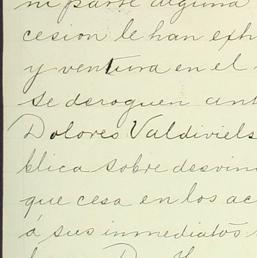 ni parte alguna
cesion le han exh
y ventura en el
se deroguen ant
Dolores Valdiviels
blica sobre desvin
que cesa en los ac
á sus inmediatos